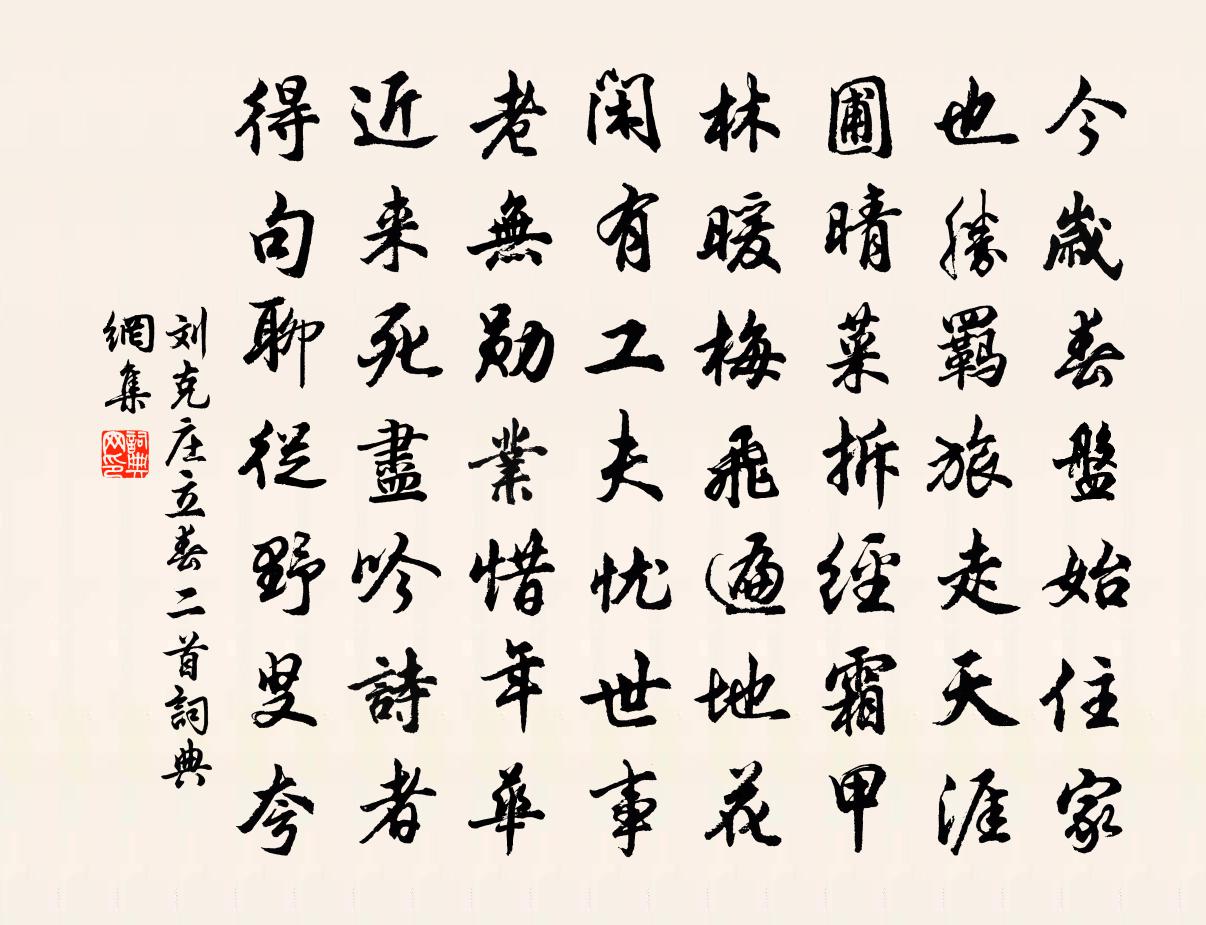 今歳春盤始住家
也勝羈旅走天涯
圃晴菜拆經霜甲
林暖梅飛遍地花
閑有工夫忧世事
老無勋業惜年華
近来死盡吟詩者
得句聊従野叟夸
刘克庄立春二首詞典
網集
詞典网印